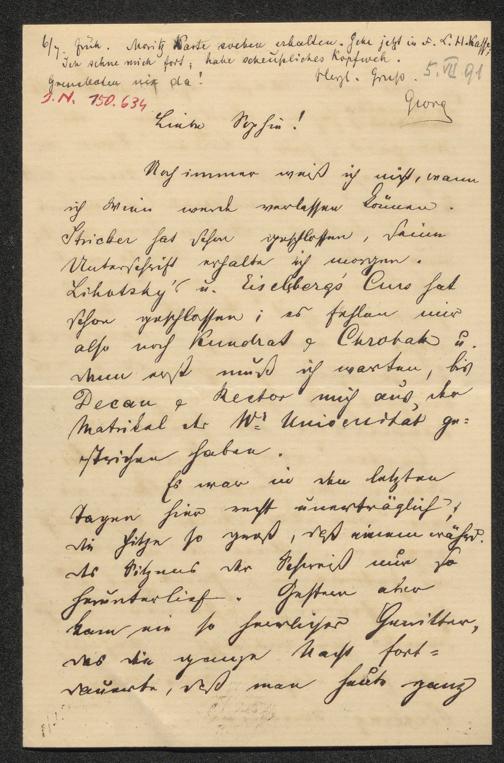 6/7. früh. Moritz Karte soeben erhalten. Gehe jetzt in d. L. H. Kaffe,
Ich sehne mich fort; habe scheußliches Kopfweh.
Grenzboten nie da! Herzl. Gruß. 5. VII 91
J.N. 150.634 Georg
Liebe Sophie!
Noch immer weiß ich nicht, wann
ich Wien werde verlassen können.
Stricker hat schon geschlossen, seine
Unterschrift erhalte ich morgen.
Lihotzky's u. Eiselsberg's Curs hat
schon geschlossen; es fehlen mir
also noch Kundrat & Chrobak u.
dann erst muß ich warten, bis
Decan & Rector mich aus der
Matrikel der Wr Universität ge-
strichen haben.
Es war in den letzten
Tagen hier recht unerträglich;
die Hitze so groß, daß einem währd.
des Sitzens der Schweiß nur so
herunterlief. Gestern aber
kam ein so herrliches Gewitter,
das die ganze Nacht fort-
dauerte, daß man heute ganz